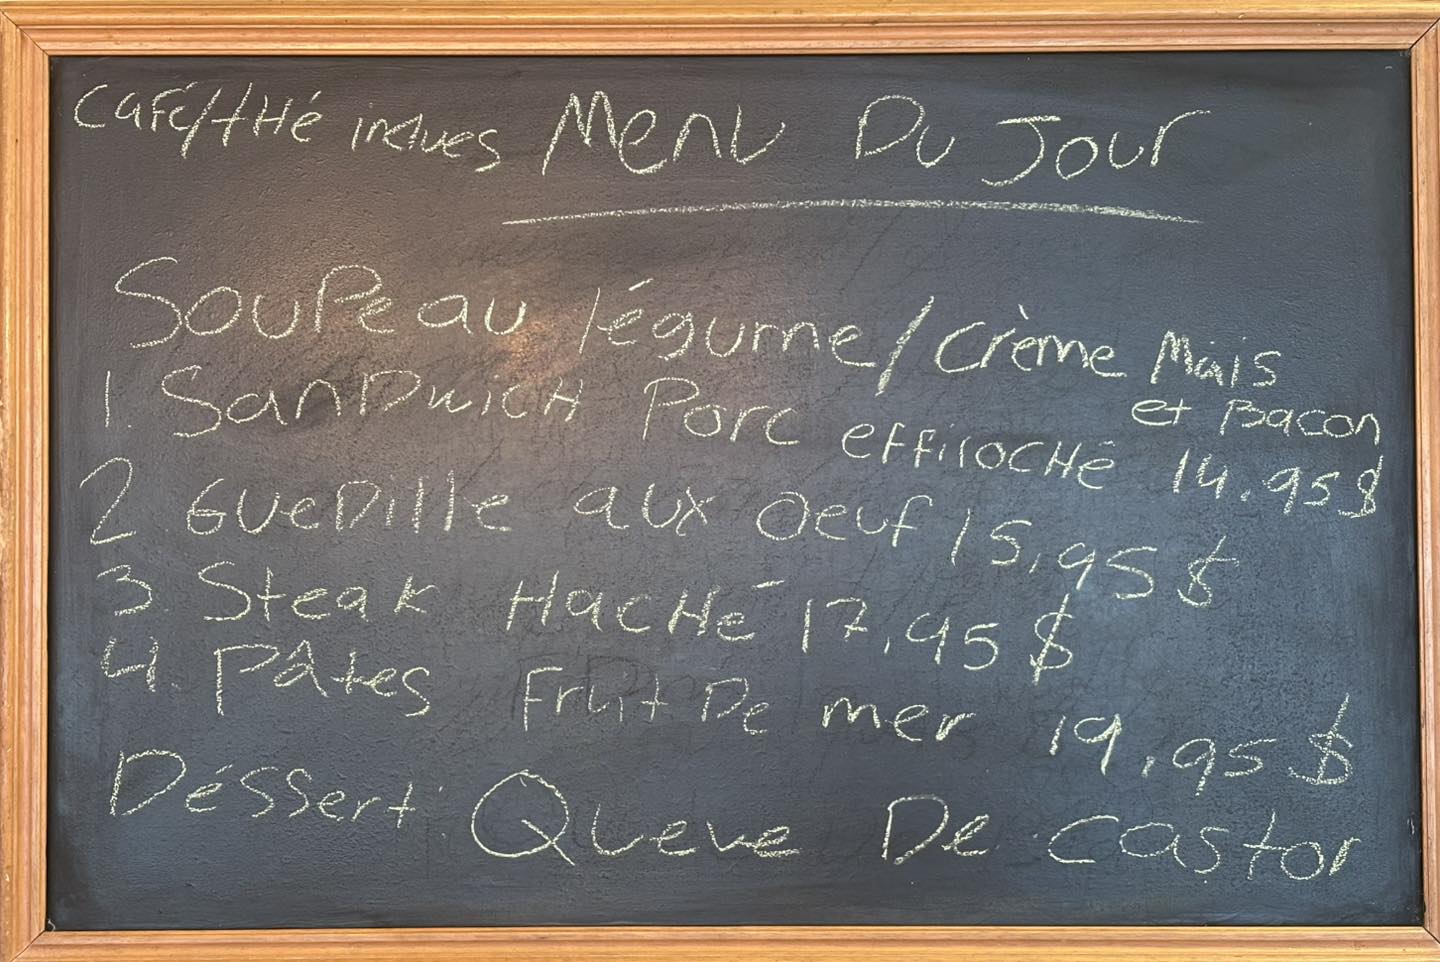 Café/tHé inclues Menu Du Jour
SouPe au légume/crème Mais
et Bacon
1. SanDwicH Porc effilocHé 14.95$
2 GueDille aux oeuf 15,95$
3. Steak HacHé 17,95$
4. Pâtes Fruit De mer 19,95$
Déssert: Queue De castor